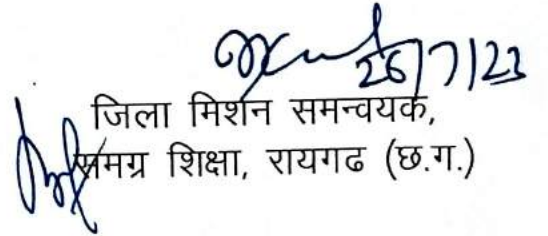 26/7/23
जिला मिशन समन्वयक,
समग्र शिक्षा, रायगढ (छ.ग.)